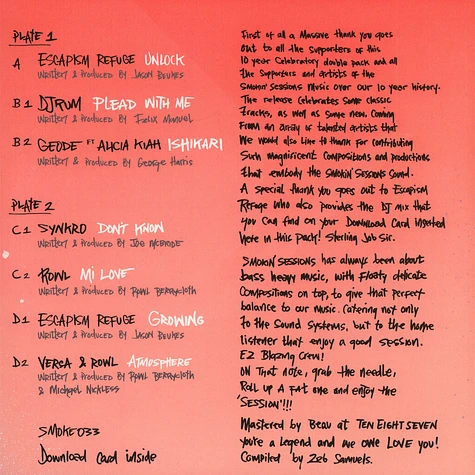 PLATE 1
A ESCAPISM REFUGE UNLOCK
Written & Produced By Jason Beukes
B1 DJRUM PLEAD WITH ME
Written & Produced by Felix Manuel
B2 GEODE FT ALICIA KIAH ISHIKARI
Written & Produced by George Harris
PLATE 2
C1 SYNKRO DON'T KNOW
Written & Produced by Joe McBride
C2 ROWL MI LOVE
Written & Produced by Rowl Berrycloth
D1 ESCAPISM REFUGE GROWING
Written & Produced By Jason Beukes
D2 VERSA & ROWL ATMOSPHERE
Written & Produced by Rowl Berrycloth
& Michael Nickless
SMOKE033
Download card inside
First of all a Massive thank you goes
out to all the supporters of this
10 year Celebratory double pack and all
the Supporters and artists of the
Smokin' Sessions Music over our 10 year history.
The release celebrates some classic
Tracks, as well as some new, coming
From an array of talented artists that
We would also like to thank for contributing
Such magnificent compositions and productions
That embody the Smokin' Sessions Sound.
A special thank you goes out to Escapism
Refuge who also provides the DJ mix that
you can find on your Download Card inserted
Here in this pack! Sterling Job Sir.
Smokin' Sessions has always been about
bass heavy music, with Floaty delicate
Compositions on top, to give that perfect
balance to our music. Catering not only
to the Sound Systems, but to the home
listener that enjoy a good session.
EZ Blazing Crew!
On that note, grab the needle,
Roll up a Fat one and enjoy the
'SESSION'!!!
Mastered by Beau at TEN EIGHT SEVEN
you're a Legend and we OWE LOVE you!
Compiled by Zeb Samuels.